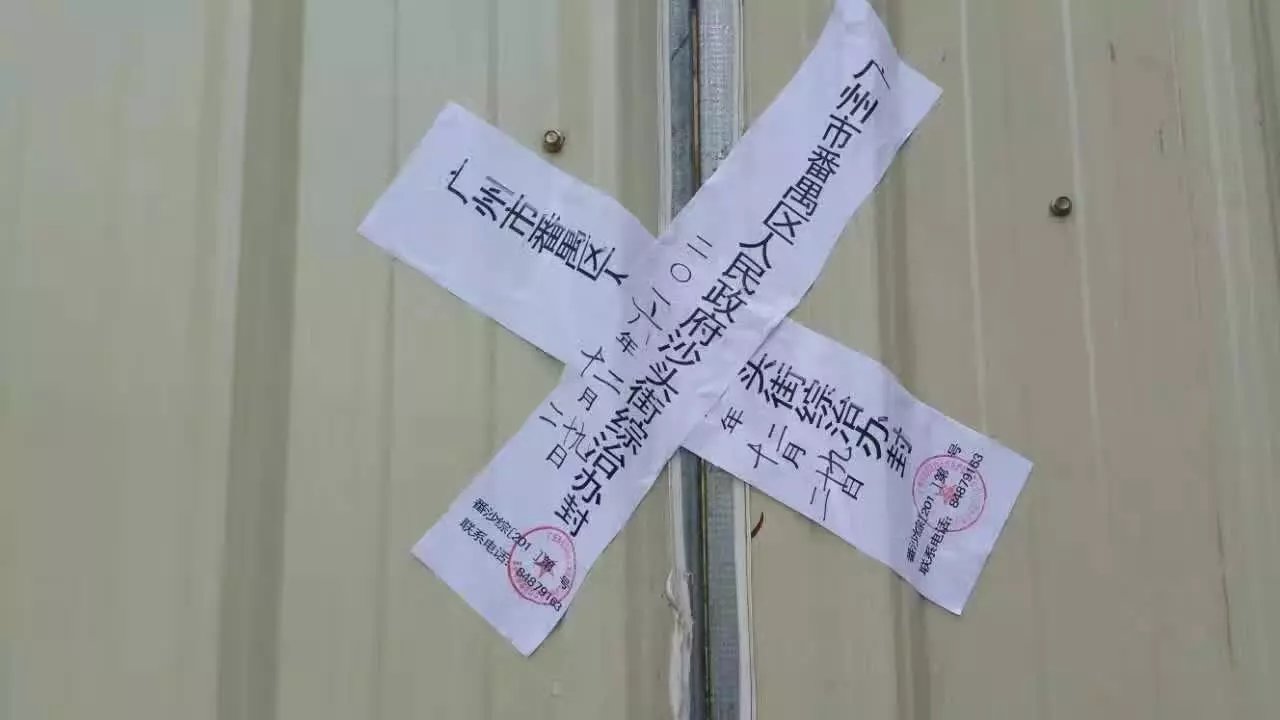 广州市番禺区人民政府沙头街综治办封
二〇一六年十二月二十九日
番沙综[201 ]第 号
联系电话：84879163
广州市番禺区人
头街综治办封
年十二月二十九日
番沙综[201 ]第 号
联系电话：84879163